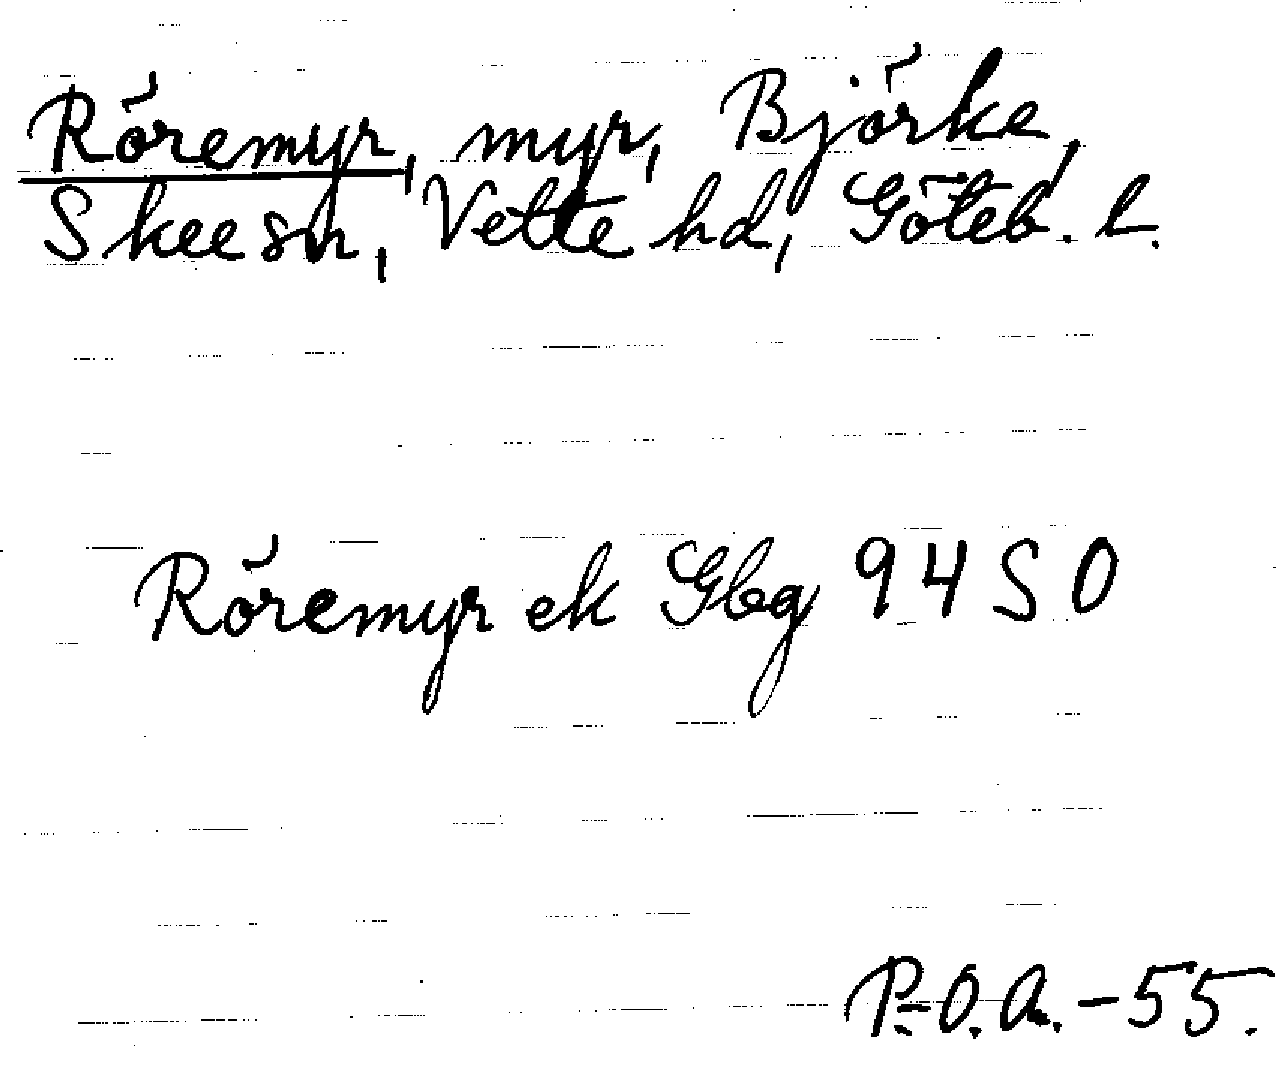 Röremyr, myr, Björke,
Skee sn, Vette hd, Göteb. l.
Röremyr ek Gbg 94 SO
P.O.A. - 55.